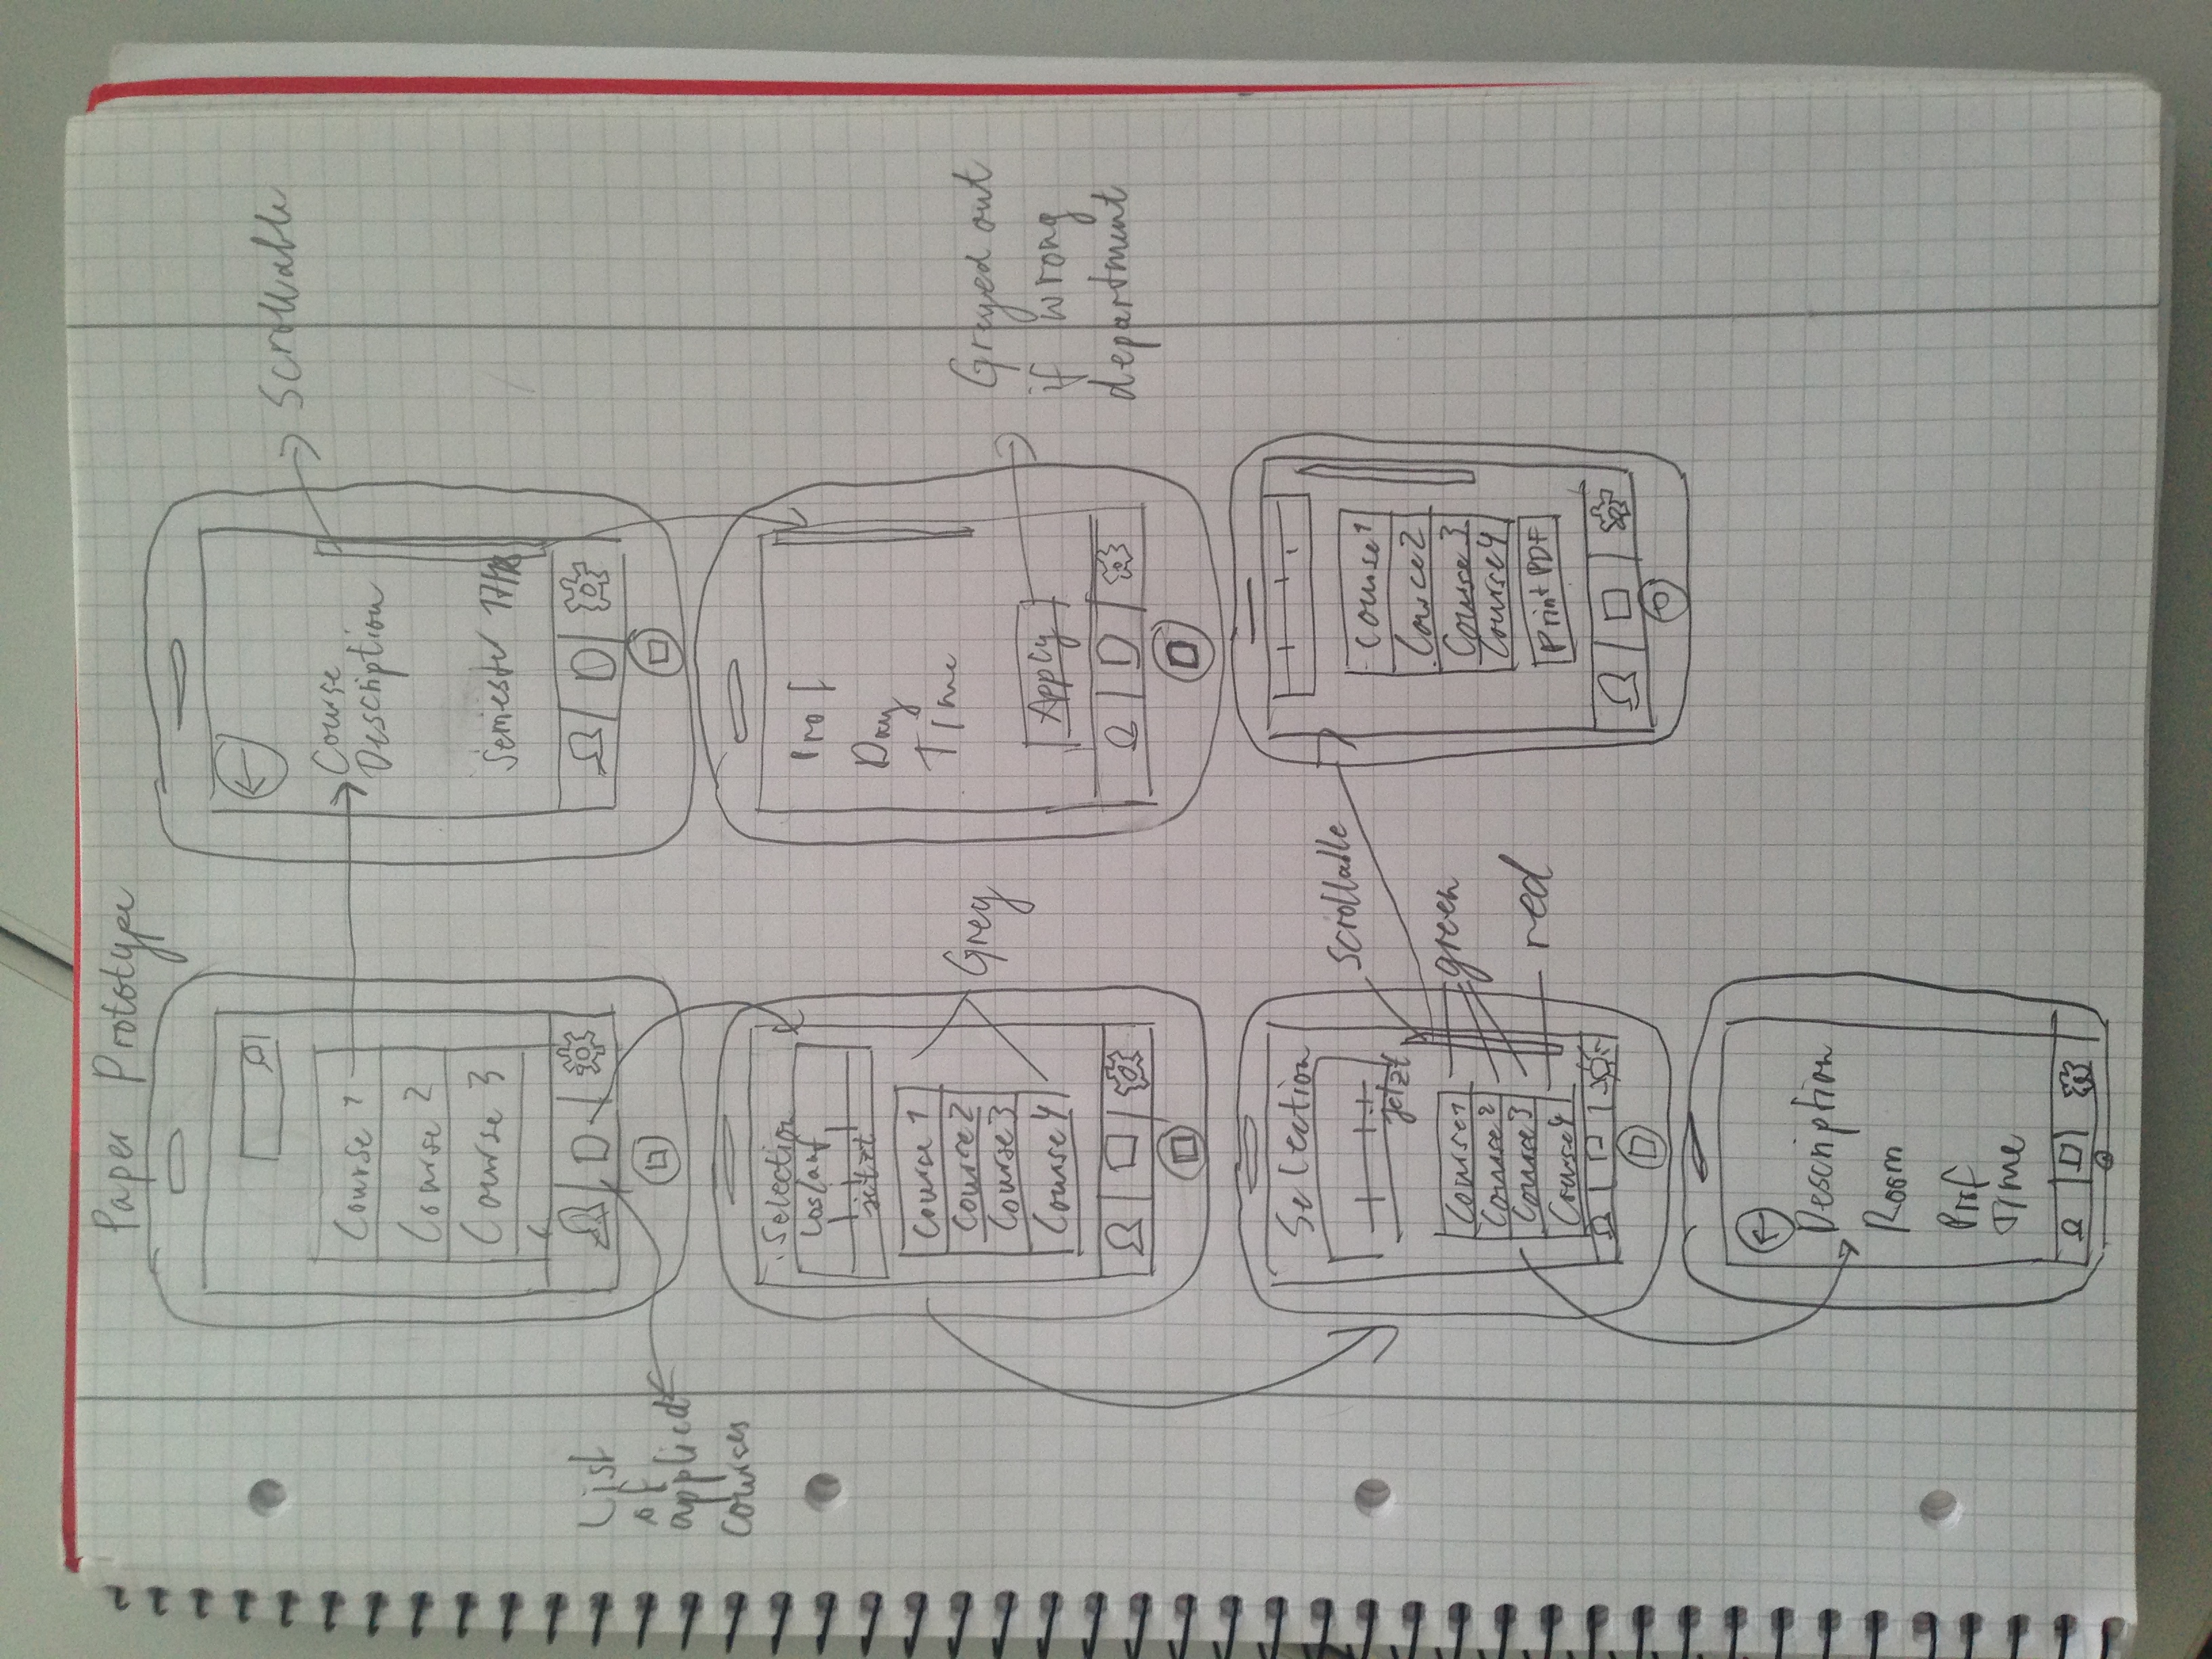 Paper Prototype
Course 1
Course 2
Course 3
Course
Description
Semester 17/18
Scrollable
List
of
applied
courses
Selection
Loslauf
jetzt
Course 1
Course 2
Course 3
Course 4
Grey
Prof
Day
Time
Apply
Greyed out
if wrong
department
Selection
jetzt
Course 1
Course 2
Course 3
Course 4
Scrollable
green
red
Course 1
Cource 2
Course 3
Course 4
Print PDF
Description
Room
Prof
Time